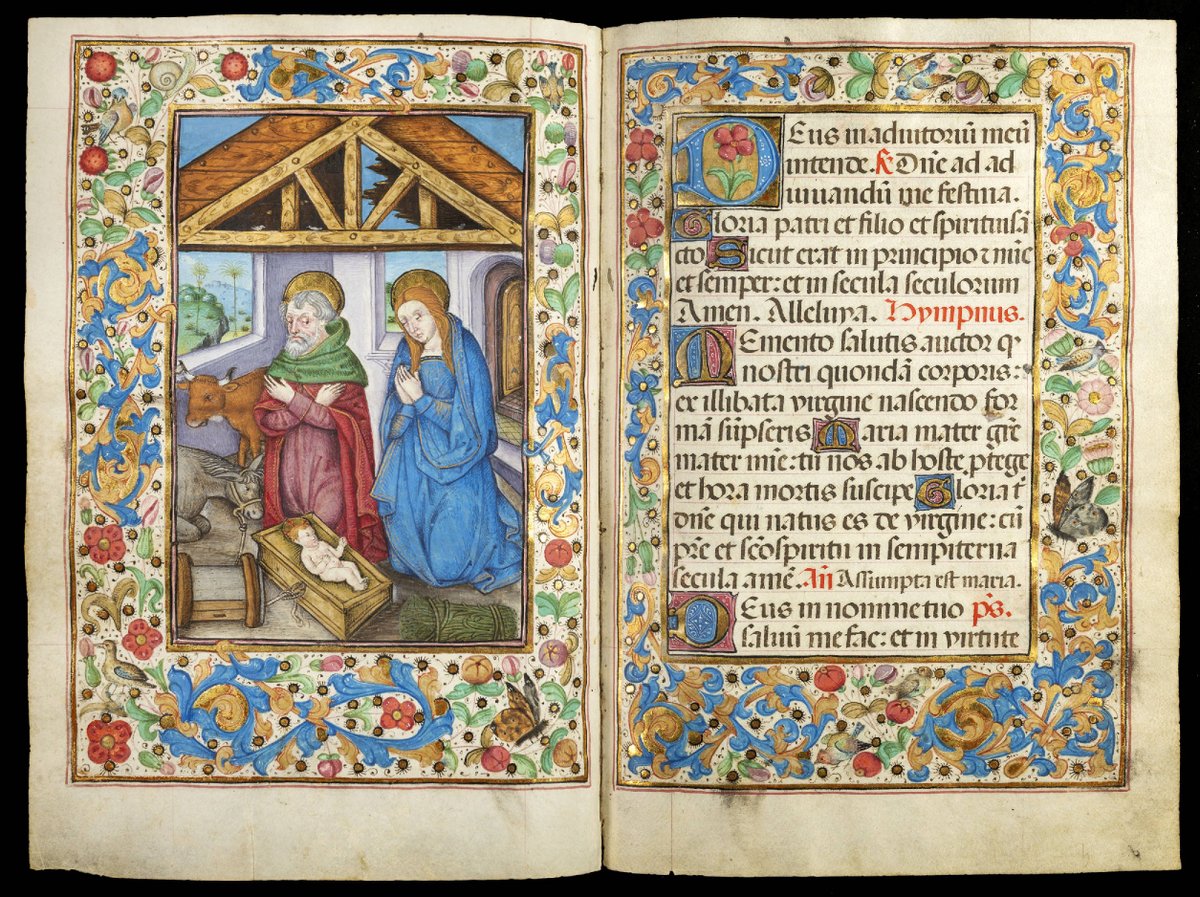 Deus in adiutoriū meū
intende. ℟ Dn̄e ad ad
iuuandū me festina.
Gloria patri et filio et spirituisā
cto Sicut erat in principio ⁊ nūc
et semper: et in secula seculorum
Amen. Alleluya. Hympnus.
Memento salutis auctor q
nostri quondā corporis:
ex illibata virgine nascendo for
mā sūpseris Maria mater grē
mater mīe: tu nos ab hoste ꝓtege
et hora mortis suscipe Gloria t̄
dn̄e qui natus es de virgine: cū
pr̄e et sc̄ospiritu in sempiterna
secula amē. An̄ Assumpta est maria.
Deus in nomine tuo ps̄.
saluū me fac: et in virtute